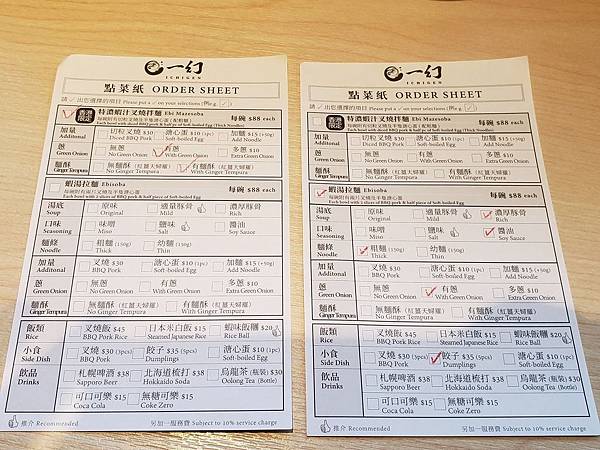 一幻
ICHIGEN
點菜紙 ORDER SHEET
請 ✓ 出您選擇的項目 Please put a ✓ on your selections (例e.g. ✓)
香港限定 特濃蝦汁叉燒拌麵 Ebi Mazesoba 每碗 $88 each
每碗附有切粒叉燒及半隻溏心蛋 (配粗麵)
Each bowl with diced BBQ pork & half pc of Soft-boiled Egg (Thick Noodles)
加量 切粒叉燒 $30 溏心蛋 $10 (1pc) 加麵 $15 (+50g)
Additonal Diced BBQ Pork Soft-boiled Egg Add Noodle
蔥 無蔥 有蔥 多蔥 $10
Green Onion No Green Onion With Green Onion Extra Green Onion
麵酥 無麵酥 (紅薑天婦羅) 有麵酥 (紅薑天婦羅)
Ginger Tempura No Ginger Tempura With Ginger Tempura
蝦湯拉麵 Ebisoba 每碗 $88 each
每碗附有兩片叉燒及半隻溏心蛋
Each bowl with 2 slices of BBQ pork & half piece of Soft-boiled Egg
湯底 原味 適量豚骨 濃厚豚骨
Soup Original Mild Rich
口味 味噌 鹽味 醬油
Seasoning Miso Salt Soy Sauce
麵條 粗麵 (150g) 幼麵 (150g)
Noodle Thick Thin
加量 叉燒 $30 溏心蛋 $10 (1pc) 加麵 $15 (+50g)
Additonal BBQ Pork Soft-boiled Egg Add Noodle
蔥 無蔥 有蔥 多蔥 $10
Green Onion No Green Onion With Green Onion Extra Green Onion
麵酥 無麵酥 (紅薑天婦羅) 有麵酥 (紅薑天婦羅)
Ginger Tempura No Ginger Tempura With Ginger Tempura
飯類 叉燒飯 $45 日本米白飯 $15 蝦味飯糰 $20
Rice BBQ Pork Rice Steamed Japanese Rice Rice Ball
小食 叉燒 $30 (3pcs) 餃子 $35 (5pcs) 溏心蛋 $10 (1pc)
Side Dish BBQ Pork Dumplings Soft-boiled Egg
飲品 札幌啤酒 $38 北海道梳打 $38 烏龍茶 (瓶裝) $30
Drinks Sapporo Beer Hokkaido Soda Oolong Tea (Bottle)
可口可樂 $15 無糖可樂 $15
Coca Cola Coke Zero
推介 Recommended 另加一服務費 Subject to 10% service charge
一幻
ICHIGEN
點菜紙 ORDER SHEET
請 ✓ 出您選擇的項目 Please put a ✓ on your selections (例e.g. ✓)
香港限定 特濃蝦汁叉燒拌麵 Ebi Mazesoba 每碗 $88 each
每碗附有切粒叉燒及半隻溏心蛋 (配粗麵)
Each bowl with diced BBQ pork & half pc of Soft-boiled Egg (Thick Noodles)
加量 切粒叉燒 $30 溏心蛋 $10 (1pc) 加麵 $15 (+50g)
Additonal Diced BBQ Pork Soft-boiled Egg Add Noodle
蔥 無蔥 有蔥 多蔥 $10
Green Onion No Green Onion With Green Onion Extra Green Onion
麵酥 無麵酥 (紅薑天婦羅) 有麵酥 (紅薑天婦羅)
Ginger Tempura No Ginger Tempura With Ginger Tempura
蝦湯拉麵 Ebisoba 每碗 $88 each
每碗附有兩片叉燒及半隻溏心蛋
Each bowl with 2 slices of BBQ pork & half piece of Soft-boiled Egg
湯底 原味 適量豚骨 濃厚豚骨
Soup Original Mild Rich
口味 味噌 鹽味 醬油
Seasoning Miso Salt Soy Sauce
麵條 粗麵 (150g) 幼麵 (150g)
Noodle Thick Thin
加量 叉燒 $30 溏心蛋 $10 (1pc) 加麵 $15 (+50g)
Additonal BBQ Pork Soft-boiled Egg Add Noodle
蔥 無蔥 有蔥 多蔥 $10
Green Onion No Green Onion With Green Onion Extra Green Onion
麵酥 無麵酥 (紅薑天婦羅) 有麵酥 (紅薑天婦羅)
Ginger Tempura No Ginger Tempura With Ginger Tempura
飯類 叉燒飯 $45 日本米白飯 $15 蝦味飯糰 $20
Rice BBQ Pork Rice Steamed Japanese Rice Rice Ball
小食 叉燒 $30 (3pcs) 餃子 $35 (5pcs) 溏心蛋 $10 (1pc)
Side Dish BBQ Pork Dumplings Soft-boiled Egg
飲品 札幌啤酒 $38 北海道梳打 $38 烏龍茶 (瓶裝) $30
Drinks Sapporo Beer Hokkaido Soda Oolong Tea (Bottle)
可口可樂 $15 無糖可樂 $15
Coca Cola Coke Zero
推介 Recommended 另加一服務費 Subject to 10% service charge